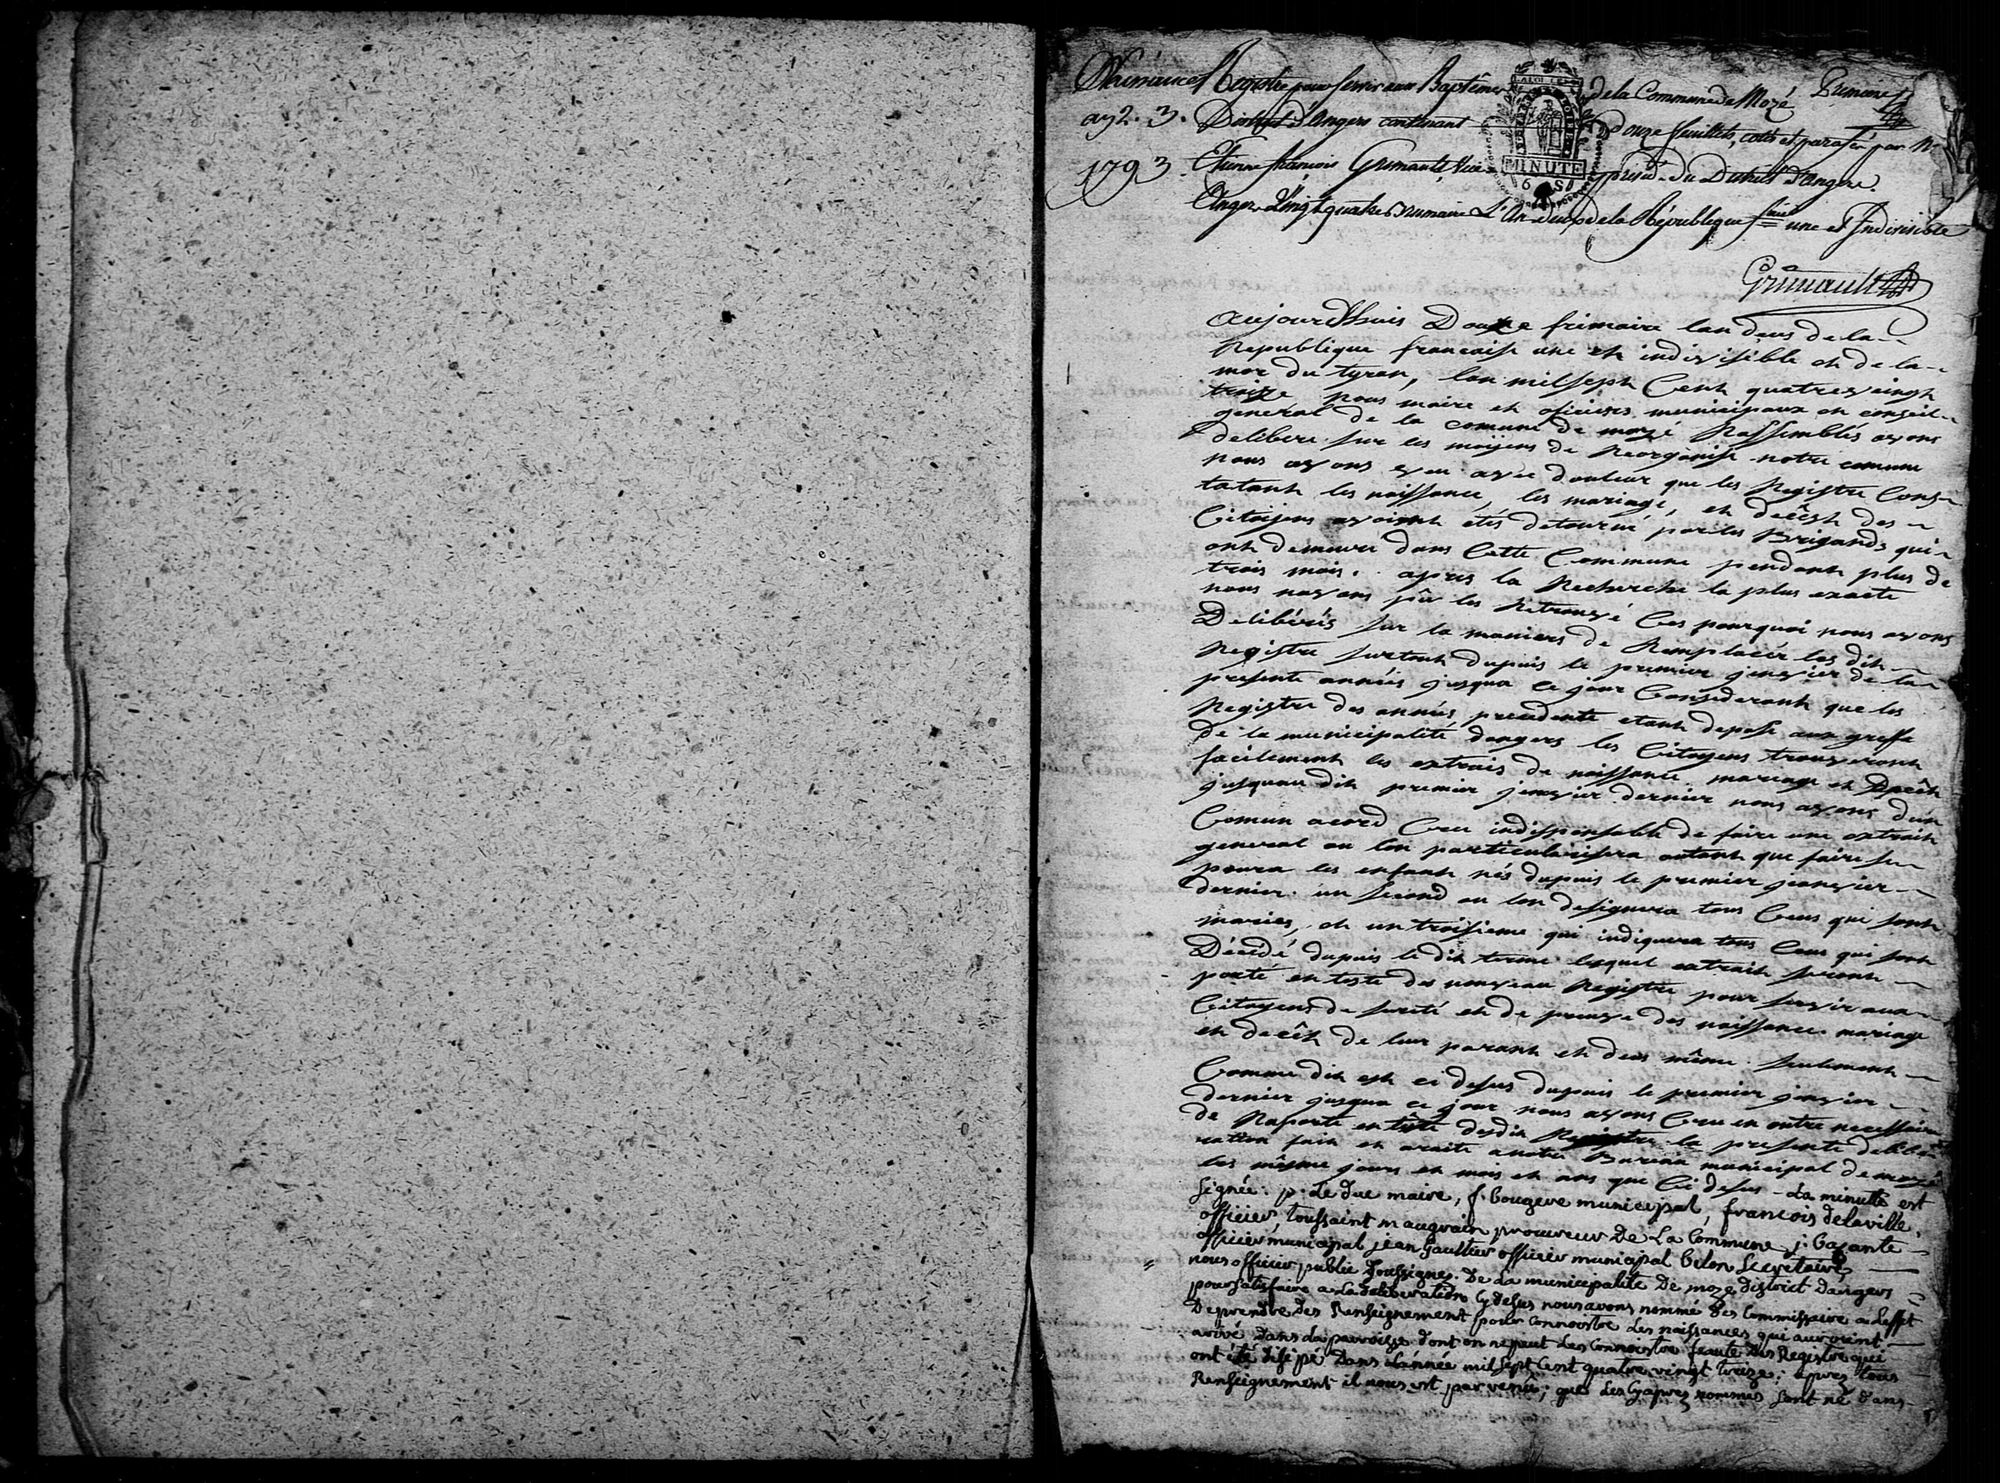 Naissances
an 2. 3.
1793
Registre pour servir aux Baptêmes de la Commune de Mozé Premier
District d'Angers contenant Douze feuillets, cotés et parafés par Nous
Etienne François Grimault, Vice présid. du District d'Angers.
Angers Vingt quatre Brumaire L'An deux de la République f.se une et Indivisible
MINUTE
6 S
Grimault
aujourdhuis Douze frimaire lan deus de la
Republique francaise une et indivisible et de la
mor du tyran, lan mil sept Cent quatrevingt
treize nous maire et oficiers municipaux en conseil
general de la comune de mozé Rassemblés ayons
delibere sur les moijens de Reorganise notre comune
nous ayons veu avec douleur que les Registre Cons
tatant les naissance, les mariage, et decêst des
Citoijens avoient etés detourné par les Brigands qui
ont demeure dans Cette Commune pendant plus de
trois mois. apres la Recherche la plus exacte
nous navons pû les Retrouvé Ces pourquoi nous avons
Delibérés sur la maniere de Remplacér les dit
Registre surtout depuis le premier janvier de la
presente années jusqua ce jour Considerant que les
Registre des années precedente etant deposé aux greffe
de la municipalité dangers les Citoyens trouveront
facilement les extrais de naissance mariage et Decêt
jusquau dit premier janvier dernier nous avons dun
Comun acord Creu indispensable de faire une extrait
general ou lon particularisera autant que faire se
poura les enfant nés depuis le premier janvier
dernier. un second ou lon designera tous Ceus qui sont
mariés, et un troisieme qui indiquera tous Ceus qui sont
Décédé depuis le dit terme lesquel extrait seront
porté en teste des nouveau Registre pour servir aux
Citoyens de sureté et de preuve des naissance mariage
et decêt de leur parant et deus même seulement
Comme dit est ci desus depuis le premier janvier
dernier jusqua ce jour nous avons Creu en outre necessaire
de Raporte en teste desdit Registre la presente delibe
ration fait et areté a notre Bureau municipal de mozé
les même jours et mois et ans que Ci desus - La minutte est
signée. p. Le duc maire, f. bougere municipal, francois delaville,
officier toussaint maugrain procureur De La Commune j. bazante
officier municipal jean Gaultier officier municipal belon secretaire
nous officier public soussigné. De La municipalite De moze District Dangers
pour satisfaire a La deliberation Cy desus nous avons nommé Des Commissaire a Leffet
De prendre des Renseignement pour Connoistre Les naissances qui auroient
arivé Dans La parroisse dont on ne peut Les Connoistre faute Des Registre qui
ont été Disipé Dans Lannée mil sept Cent quatre vingt treize; apres tous
Renseignement il nous est parvenü, que Les Cy apres nommes sont né Dans